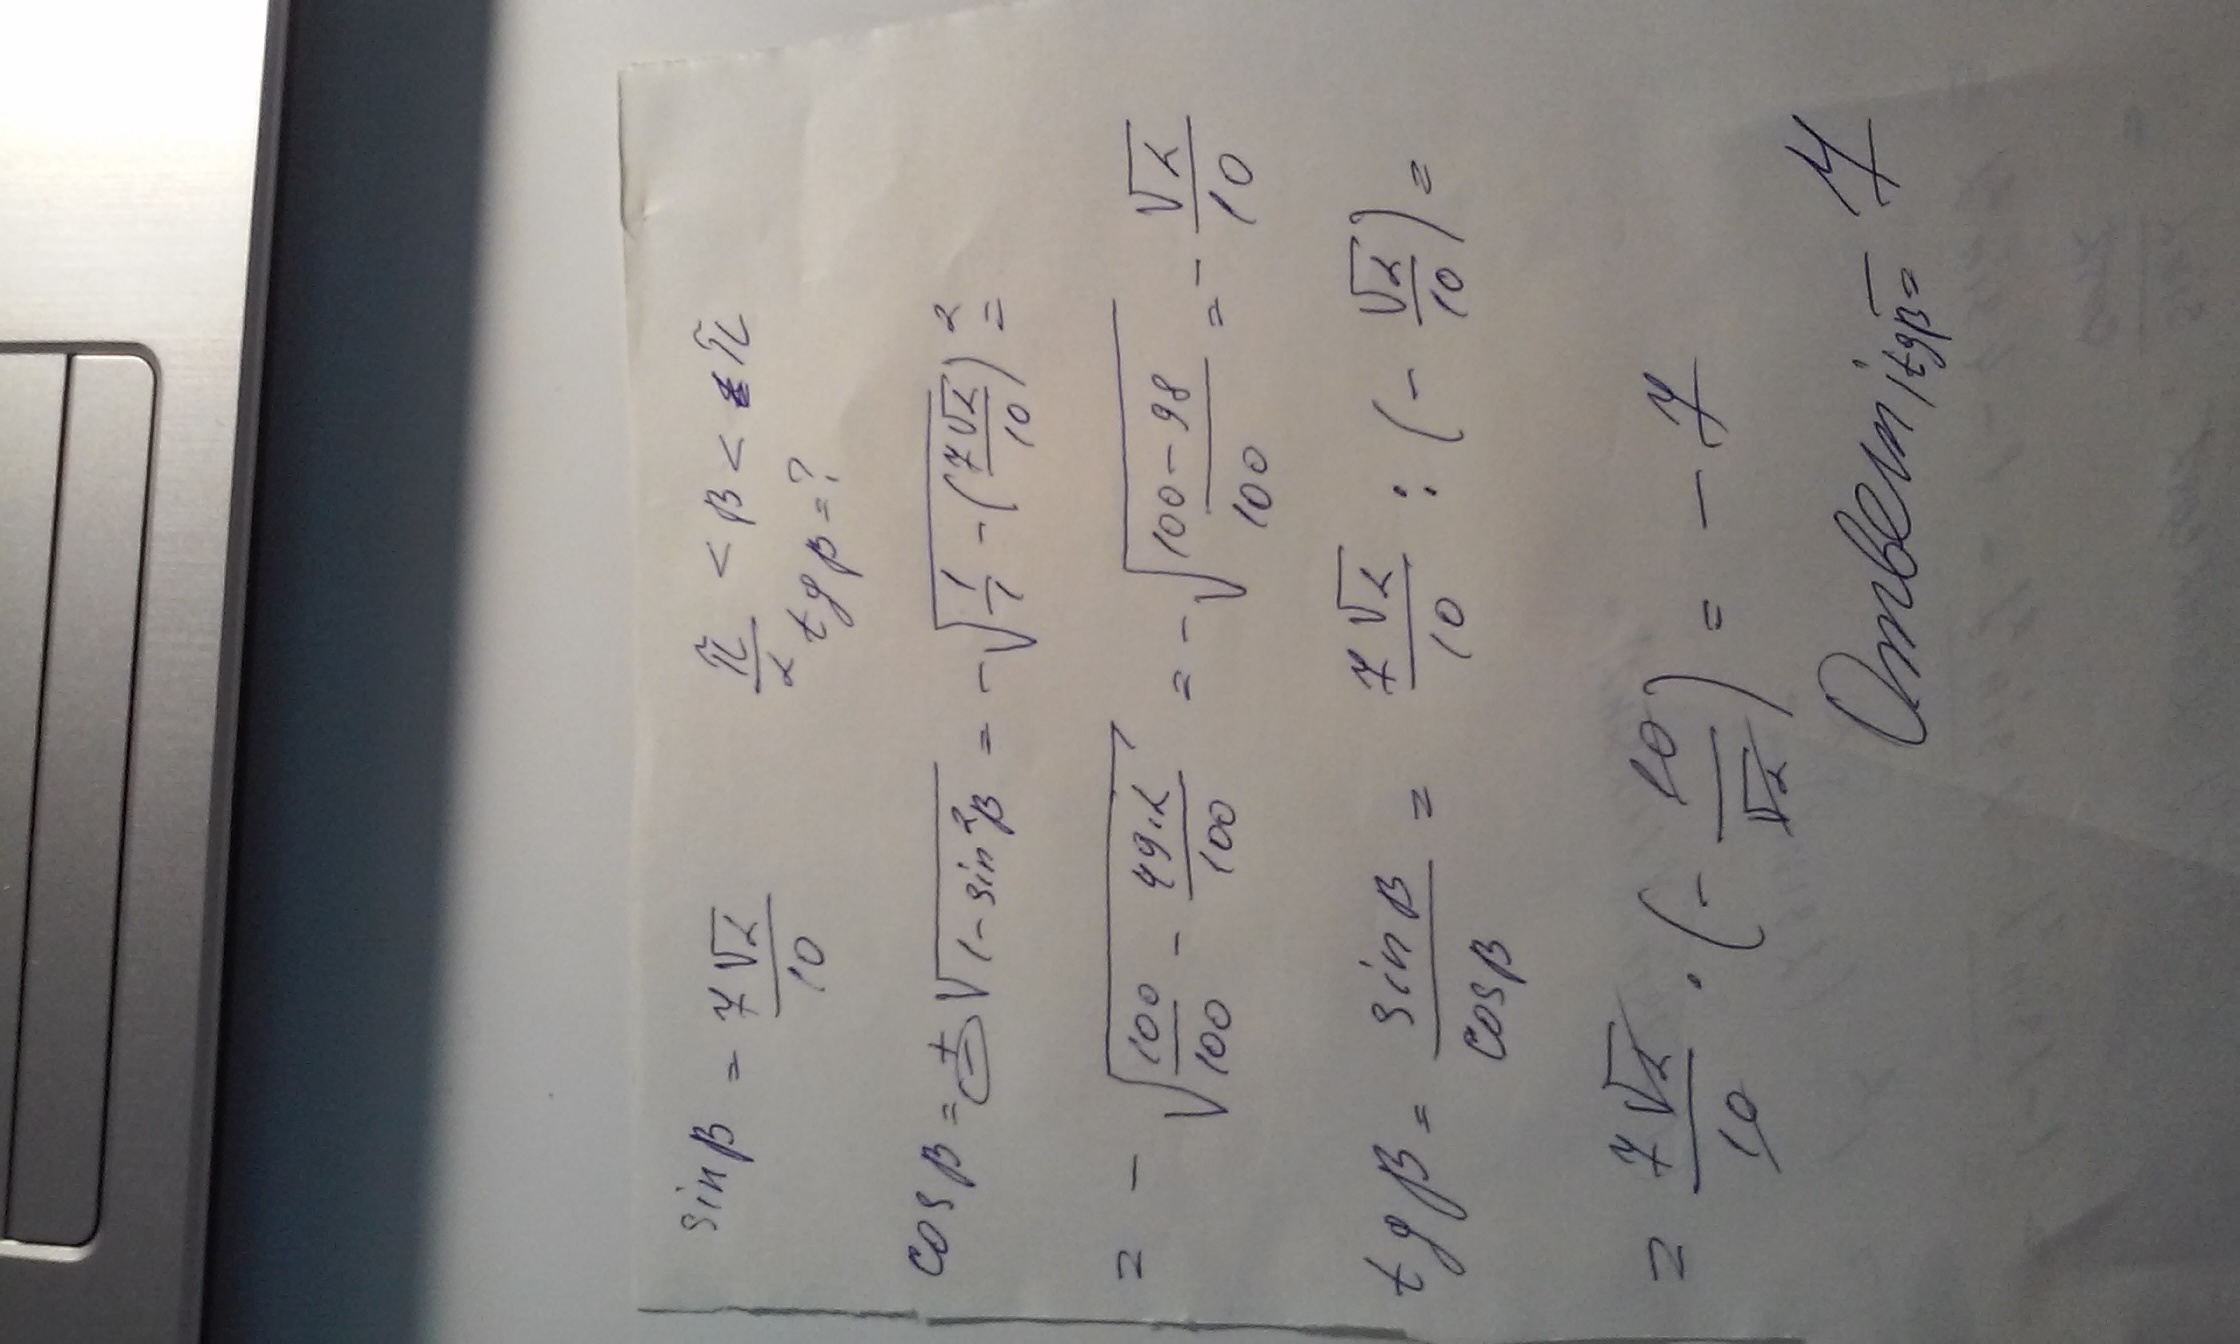 sin β = 7√2/10    π/2 < β < π
tg β = ?
cos β = ± √(1 - sin²β) = - √(1/1 - (7√2/10)²) =
= - √(100/100 - 49·2/100) = - √((100-98)/100) = - √2/10
tg β = sin β/cos β = 7√2/10 : (- √2/10) =
= 7√2/10 · (- 10/√2) = - 7
Ответ: tgβ = - 7